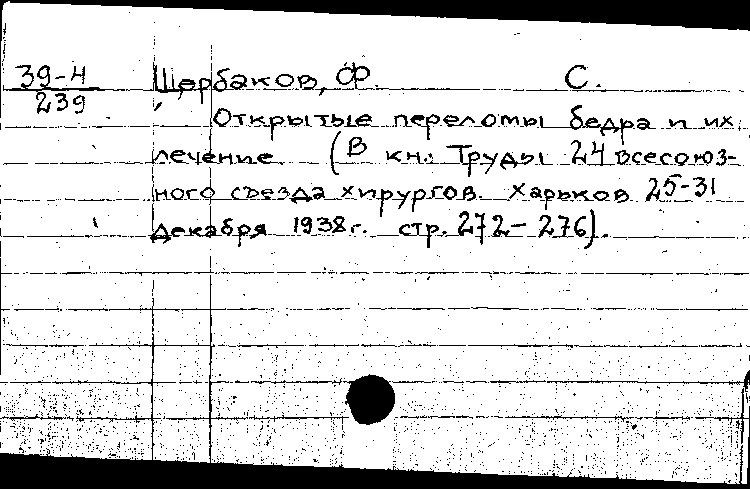 39-4 Щербаков, Ф. С.
239
Открытые переломы бедра и их
лечение (В кн.: Труды 24 всесоюз-
ного съезда хирургов. Харьков 25-31
декабря 1938г. стр. 272-276).